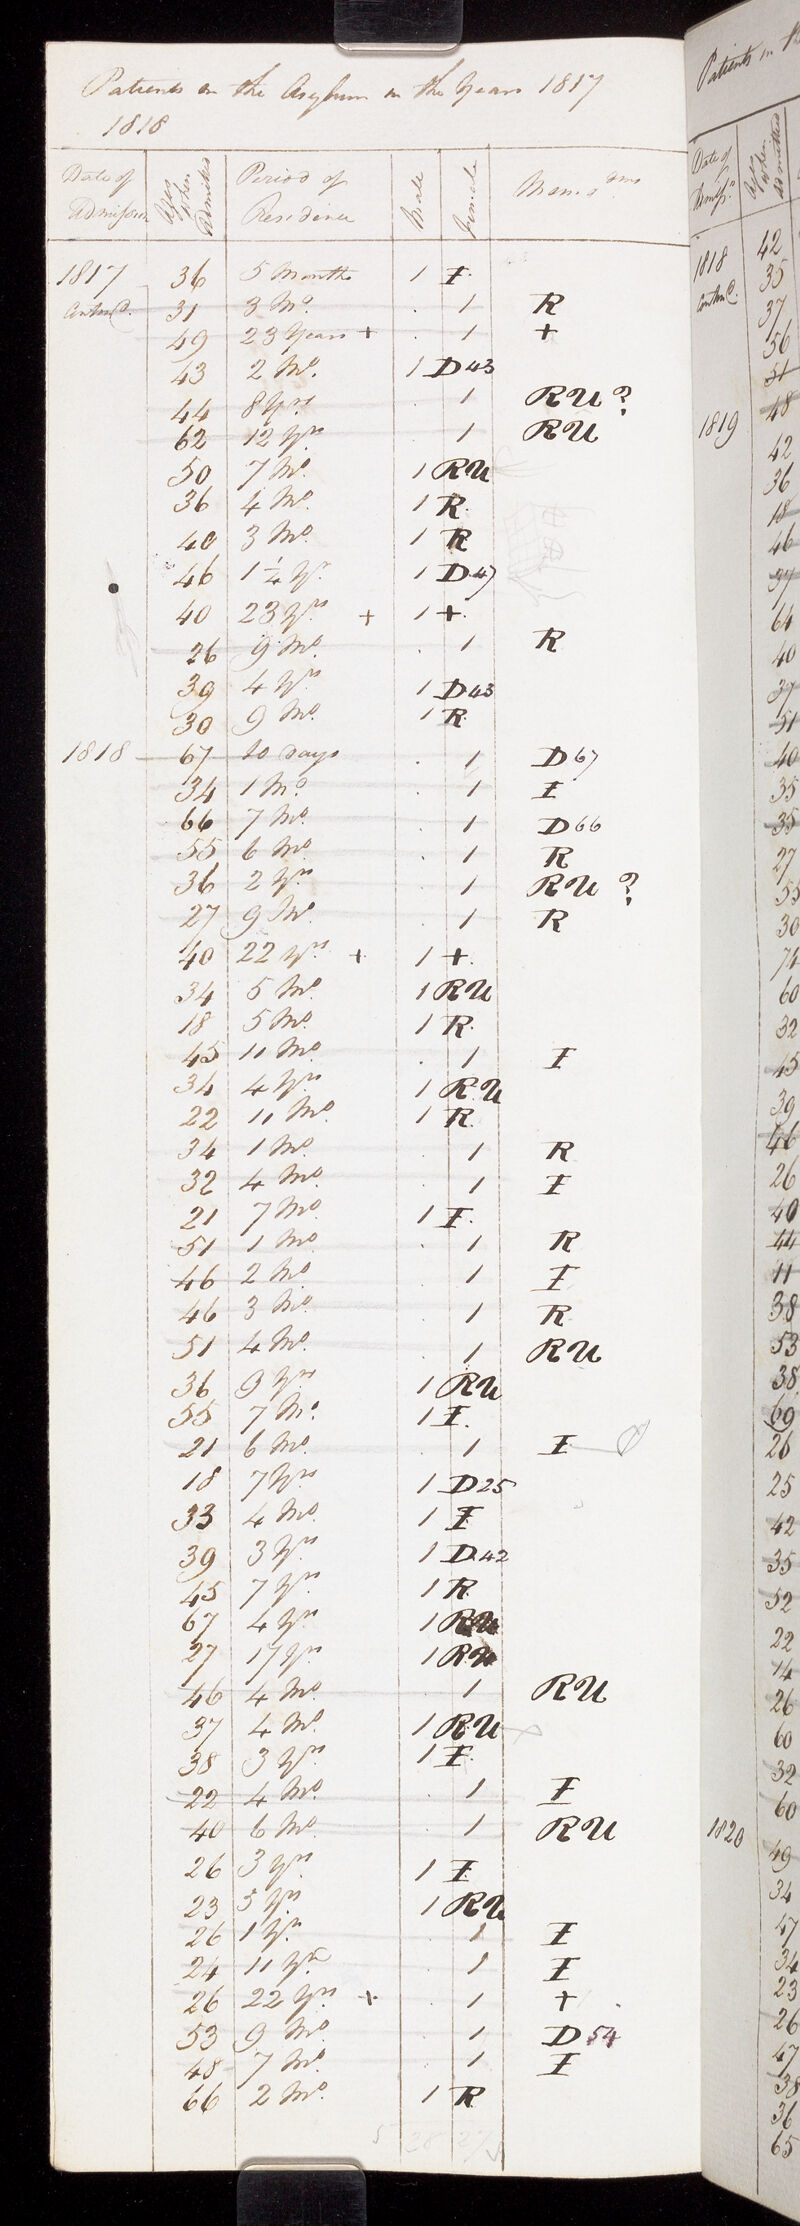 Patients in the Asylum in the Years 1817
1818
Date of Admission Ages when Admitted Period of Residence Male Female Memo^ms
1817 36 5 Months 1 I
Contn^d. 31 3 Mo. . 1 R
49 23 Years + . 1 +
43 2 Mo. 1 D 43
44 8 Yrs . 1 RU ?
62 12 Yrs . 1 RU
50 7 Mo. 1 RU
36 4 Mo. 1 R.
40 3 Mo. 1 R
46 1 1/4 Yr. 1 D 47
40 23 Yrs + 1 +.
26 9 Mo. . 1 R
39 4 Yrs 1 D 43
30 9 Mo. 1 R.
1818 67 10 Days . 1 D 67
34 1 Mo . 1 I
66 7 Mo. . 1 D 66
55 6 Mo. . 1 R
36 2 Yrs . 1 RU ?
27 9 Mo. . 1 R
40 22 Yrs + 1 +.
34 5 Mo. 1 RU
18 5 Mo. 1 R.
45 11 Mo. . 1 I
34 4 Yrs 1 RU
22 11 Mo. 1 R.
34 1 Mo. . 1 R
32 4 Mo. . 1 I
21 7 Mo. 1 I.
51 1 Mo. . 1 R
46 2 Mo. . 1 I
46 3 Mo. . 1 R
51 4 Mo. . 1 RU
36 9 Yrs 1 RU
55 7 Mo. 1 I.
21 6 Mo. . 1 I
18 7 Yrs 1 D 25
33 4 Mo. 1 I
39 3 Yrs 1 D. 42
45 7 Yrs 1 R
67 4 Yrs 1 RU
27 17 Yrs 1 RU
46 4 Mo. . 1 RU
37 4 Mo. 1 RU
38 3 Yrs 1 I.
22 4 Mo. . 1 I
40 6 Mo. . 1 RU
26 3 Yrs 1 I
23 5 Yrs 1 RU
26 1 Yr. 1 I
24 11 Yrs . 1 I
26 22 Yrs + . 1 +
53 9 Mo. . 1 D 54
48 7 Mo. . 1 I
66 2 Mo. 1 R
Patients in
Date of Admiss^n Ages when Admitted
1818 42
Contn^d. 35
37
56
51
48
1819 42
36
18
46
37
64
40
37
51
40
35
35
27
55
30
74
60
32
45
39
46
26
40
44
11
38
53
38
69
26
25
42
35
52
22
14
26
60
32
60
1820 49
34
47
34
23
26
47
38
36
65